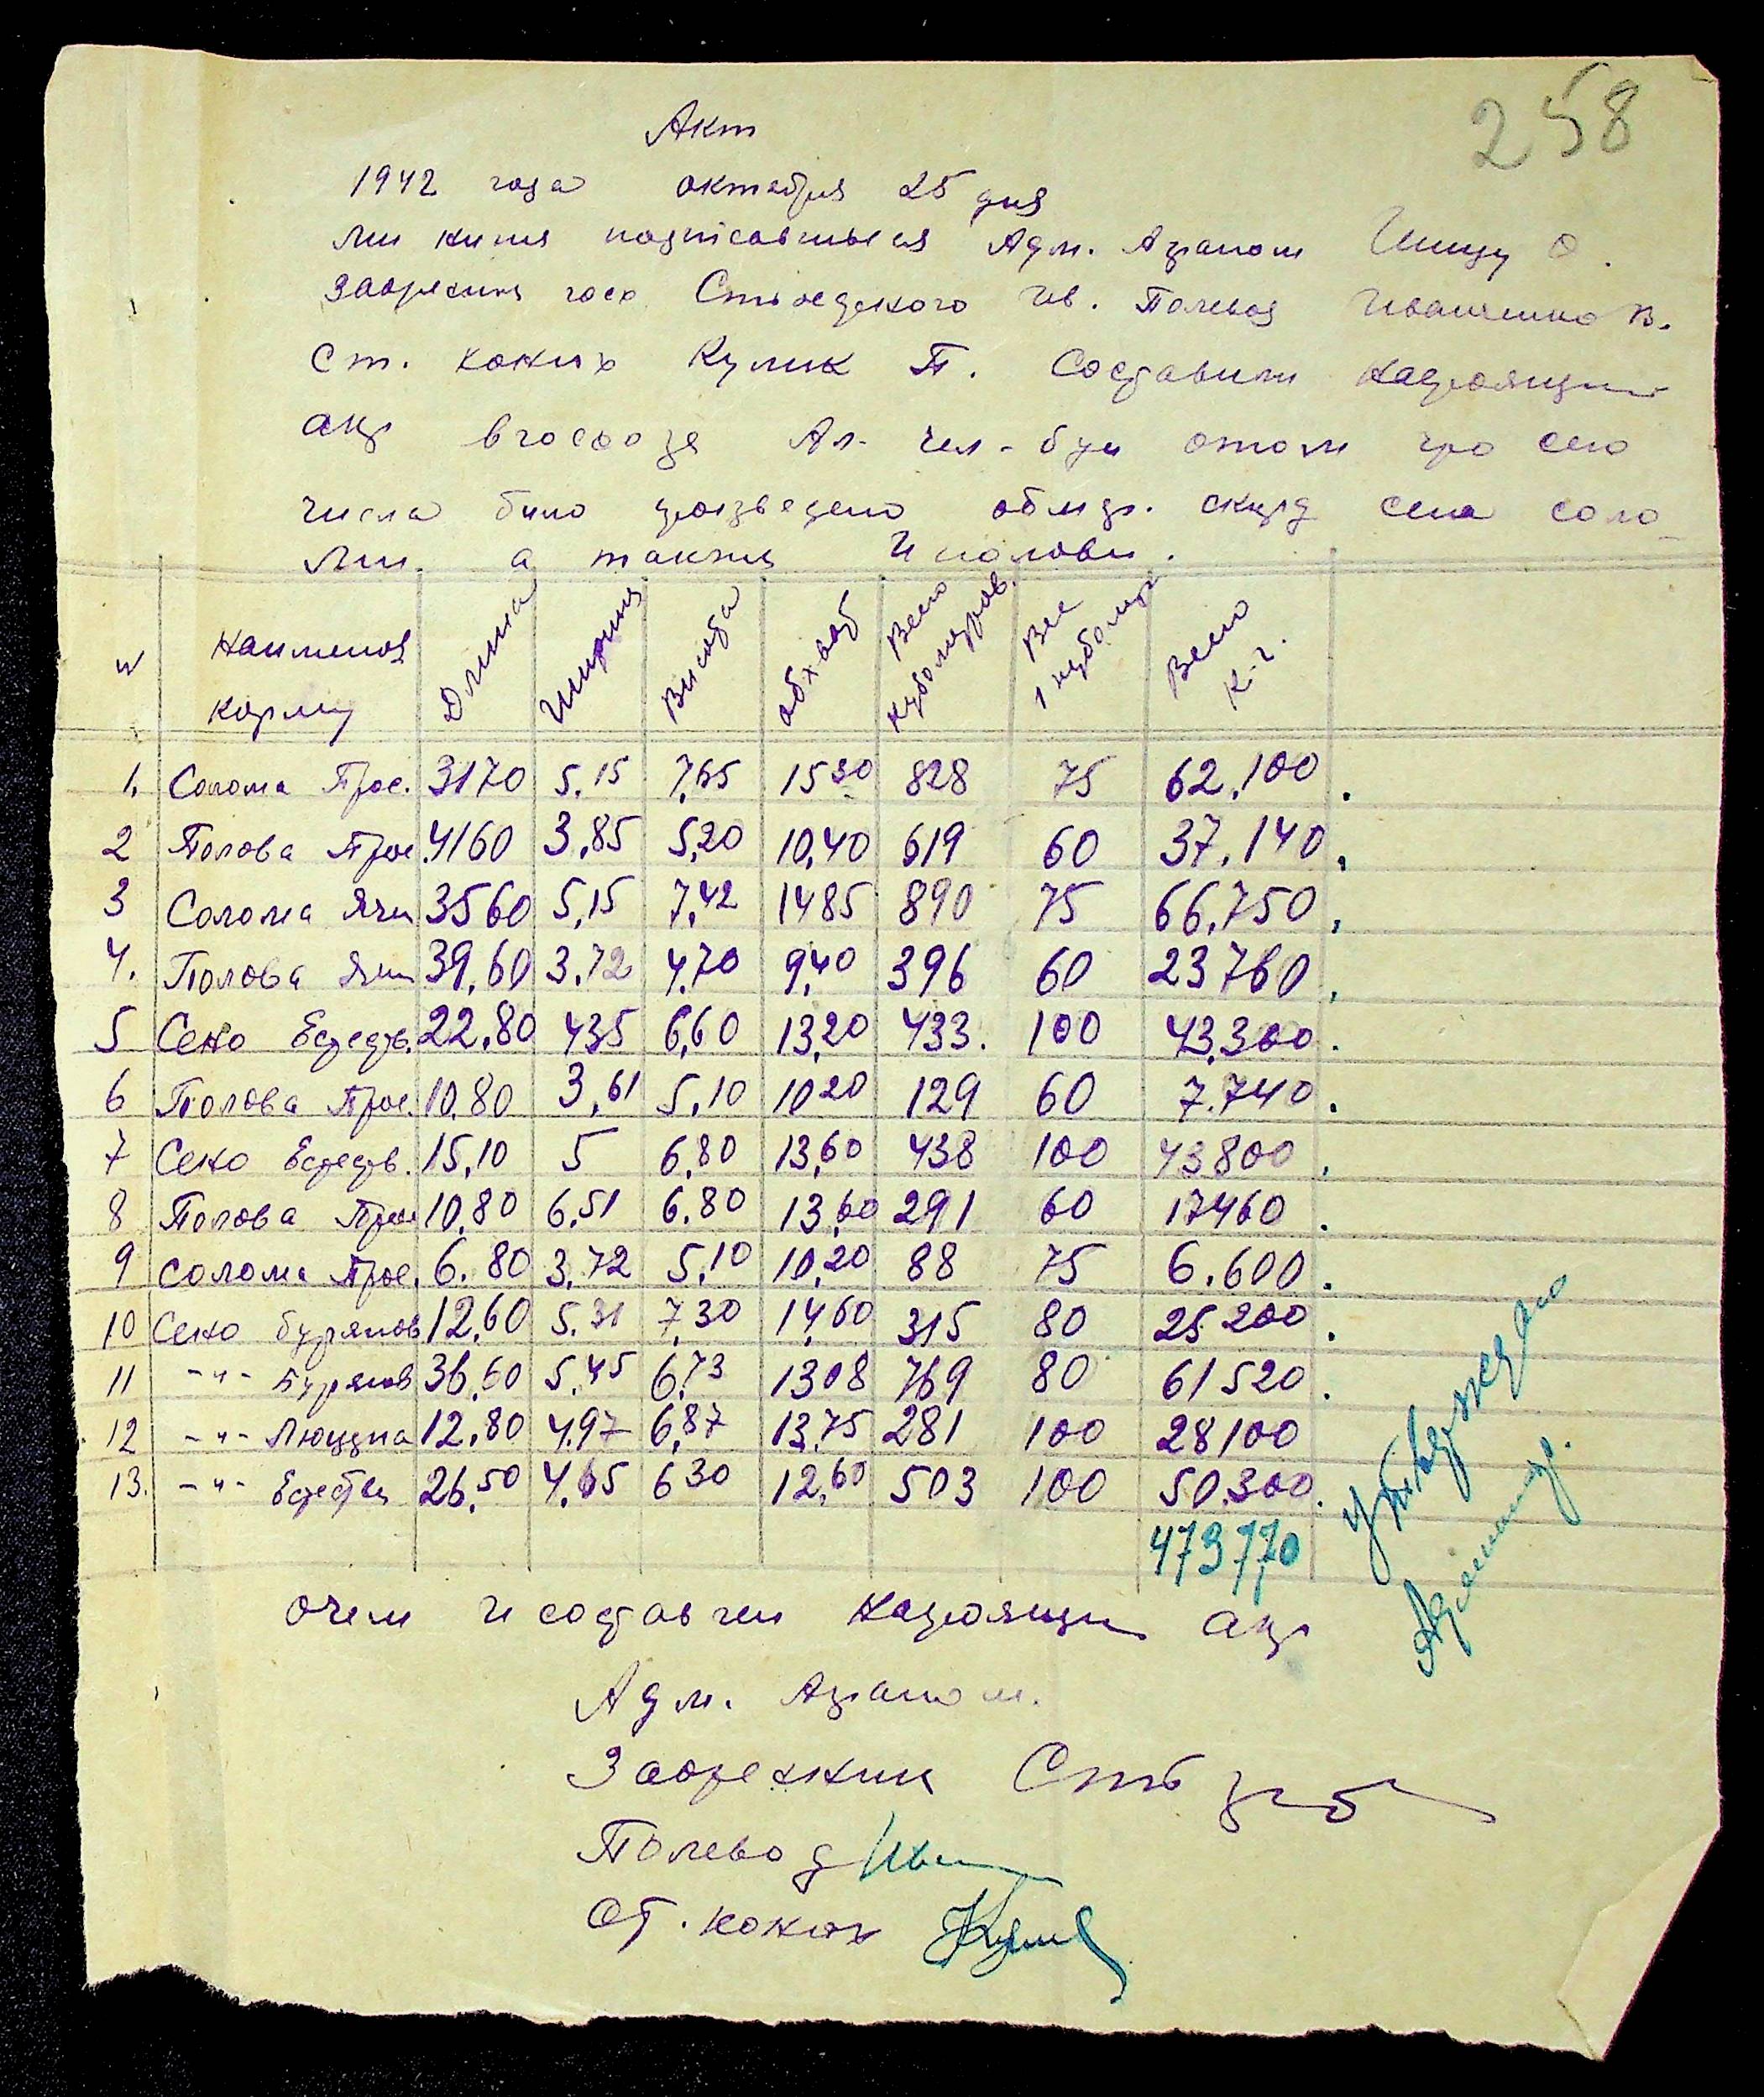 258
Акт
1942 года октября 25 дня
Ми ниже подписавшиеся Адм. Аграном О.
госо. Полевод Иванченко В.
Ст. конюх Кулик П. Составили настоящий
акт в госхозе отом что сего
числа било произведено обмер. скирд сена соло
ми. а также и полови.
№ Наименов корму Длина Ширина Висота обхват Всего кубометров. Вес 1 кубометр Всего К-г.
1. Солома Прос. 3170 5.15 7,65 15 30 828 75 62.100.
2 Полова Прос. 4160 3,85 5,20 10,40 619 60 37.140.
3 Солома Ячм 3560 5,15 7,42 1485 890 75 66.750.
4. Полова Ячм 39,60 3.72 4.70 9,40 396 60 23760.
5 Сено Естеств. 22.80 435 6,60 13,20 433. 100 43.300.
6 Полова Прос. 10.80 3,61 5,10 10 20 129 60 7.740.
7 Сено Естеств. 15,10 5 6,80 13,60 438 100 43800.
8 Полова Прос 10,80 6,51 6.80 13,60 291 60 17460.
9 Солома Прос. 6.80 3,72 5,10 10,20 88 75 6.600.
10 Сено бурянов 12,60 5.31 7,30 14,60 315 80 25200.
11 -"- Бурянов 36,60 5,45 6,73 1308 769 80 61520.
12 -"- Люцерна 12,80 4.97 6,87 13,75 281 100 28100
13. -"- Естеств 26,50 4,65 6 30 12,60 503 100 50.300.
473770
Утверждаю
очем и составлен настоящий акт
Адм. Аграном.
Полевод
Ст. конюх Кулик